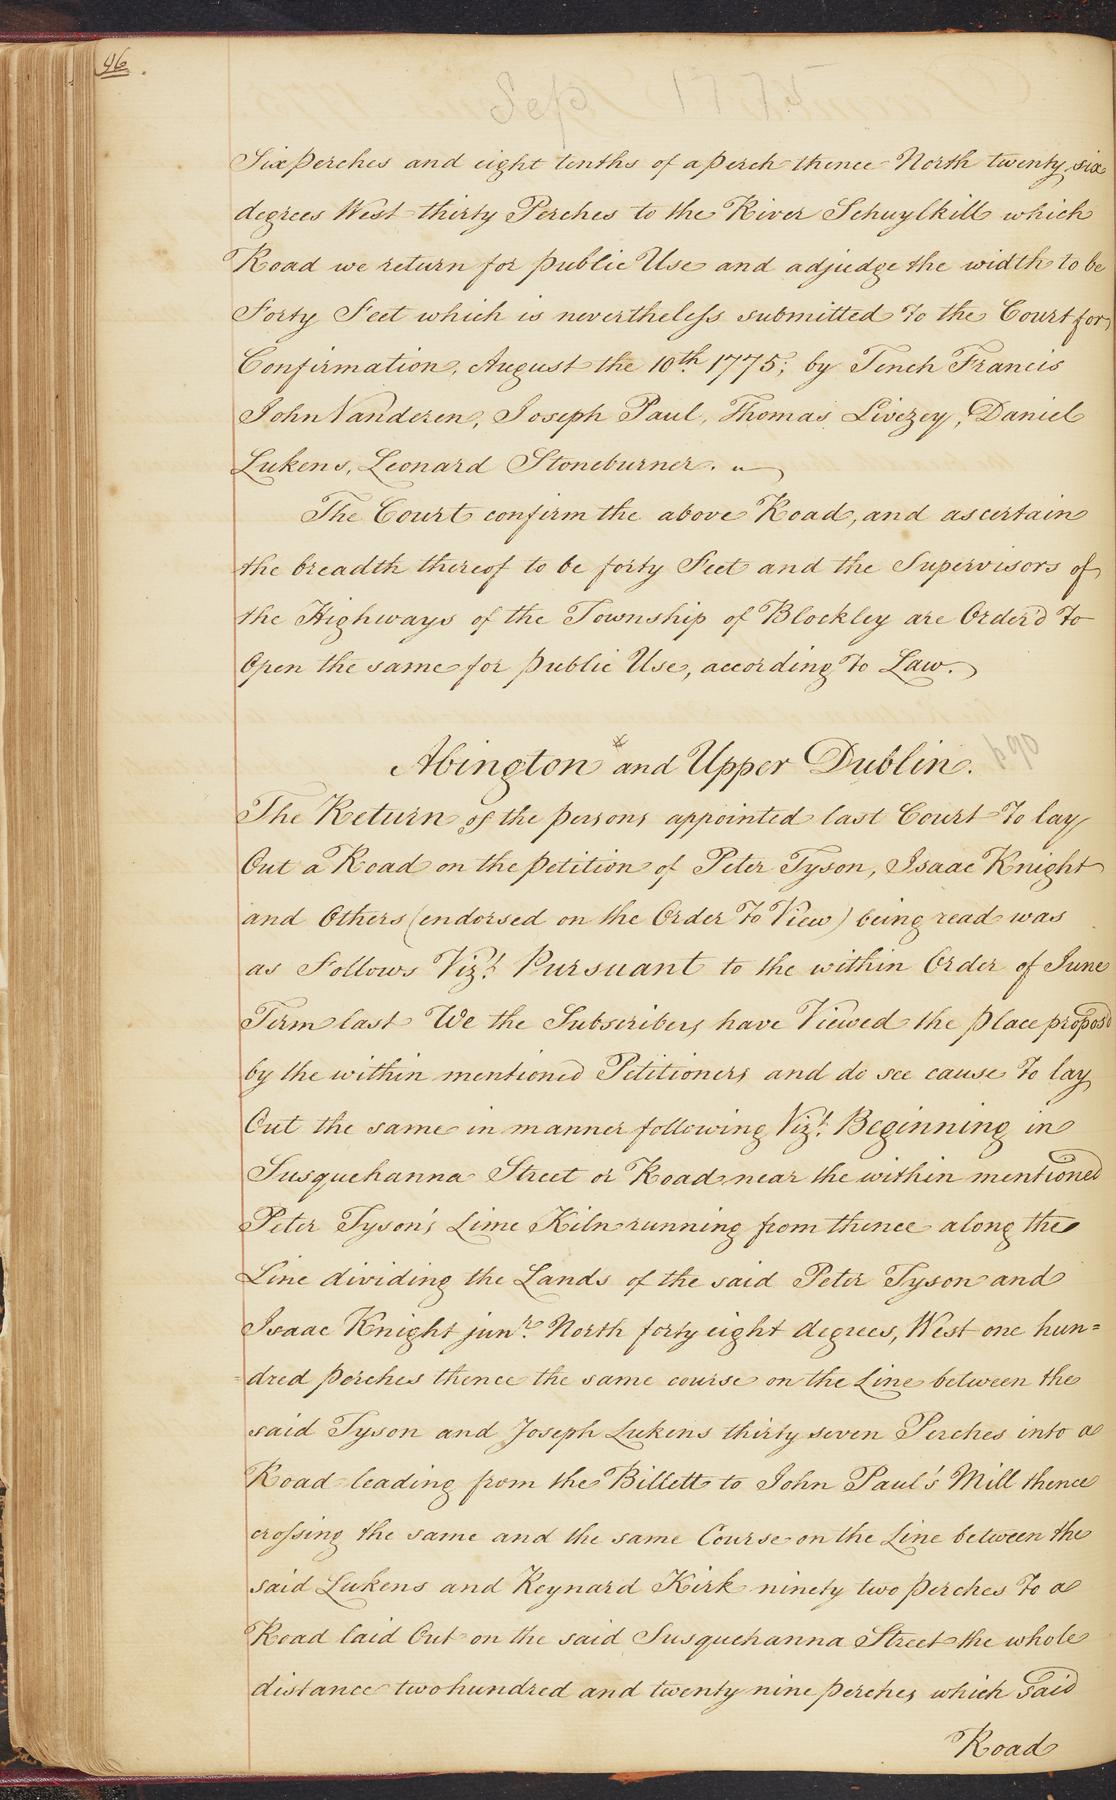 96.
Sep 1775
Six perches and eight tenths of a perch thence North twenty six
degrees West thirty Perches to the River Schuylkill which
Road we return for public Use and adjudge the width to be
Forty Feet which is nevertheless submitted to the Court for
Confirmation, August the 10th. 1775; by Tench Francis
John Vanderen, Joseph Paul, Thomas Livezey, Daniel
Lukens, Leonard Stoneburner.
The Court confirm the above Road, and ascertain
the breadth thereof to be forty Feet and the Supervisors of
the Highways of the Township of Blockley are Order'd To
Open the same for public Use, according To Law.
Abington and Upper Dublin. p90
The Return of the persons appointed last Court To lay
Out a Road on the petition of Peter Tyson, Isaac Knight
and Others (endorsed on the Order To View) being read was
as Follows Vizt. Pursuant to the within Order of June
Term last We the Subscribers have Viewed the place propos'd
by the within mentioned Petitioners and do see cause To lay
Out the same in manner following Vizt. Beginning in
Susquehanna Street or Road near the within mentioned
Peter Tyson's Lime Kiln running from thence along the
Line dividing the Lands of the said Peter Tyson and
Isaac Knight junr. North forty eight degrees, West one hun=
dred perches thence the same course on the Line between the
said Tyson and Joseph Lukens thirty seven Perches into a
Road leading from the Billett to John Paul's Mill thence
crossing the same and the same Course on the Line between the
said Lukens and Reynard Kirk ninety two perches To a
Road laid Out on the said Susquehanna Street the whole
distance two hundred and twenty nine perches which said
Road